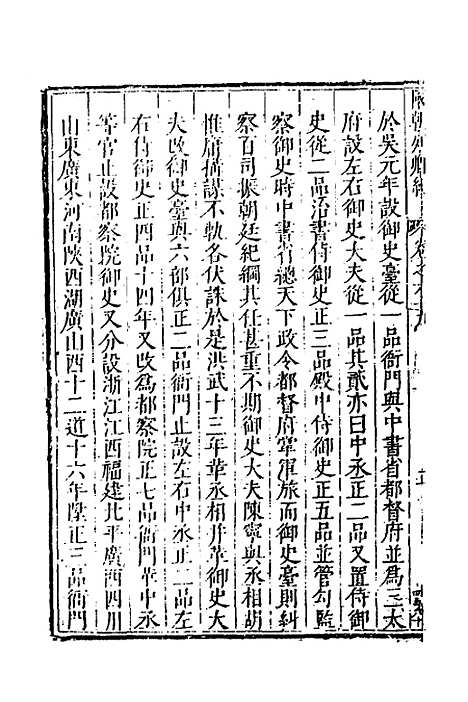 於吳元年設御史臺從一品衙門與中書省都督府並爲三大
府設左右御史大夫從一品其貳亦曰中丞正二品又置侍御
史從二品治書侍御史正三品殿中侍御史正五品並管勾監
察御史時中書省總天下政令都督府掌軍旅而御史臺則糾
察百司振朝廷紀綱其任甚重不期御史大夫陳寧與丞相胡
惟庸搆謀不軌各伏誅於是洪武十三年革丞相幷革御史大
夫改御史臺與六部俱正二品衙門止設左右中丞正二品左
右侍御史正四品十四年又改爲都察院正七品衙門革中丞
等官止設都察院御史又分設浙江江西福建北平廣西四川
山東廣東河南陝西湖廣山西十二道十六年陞正三品衙門